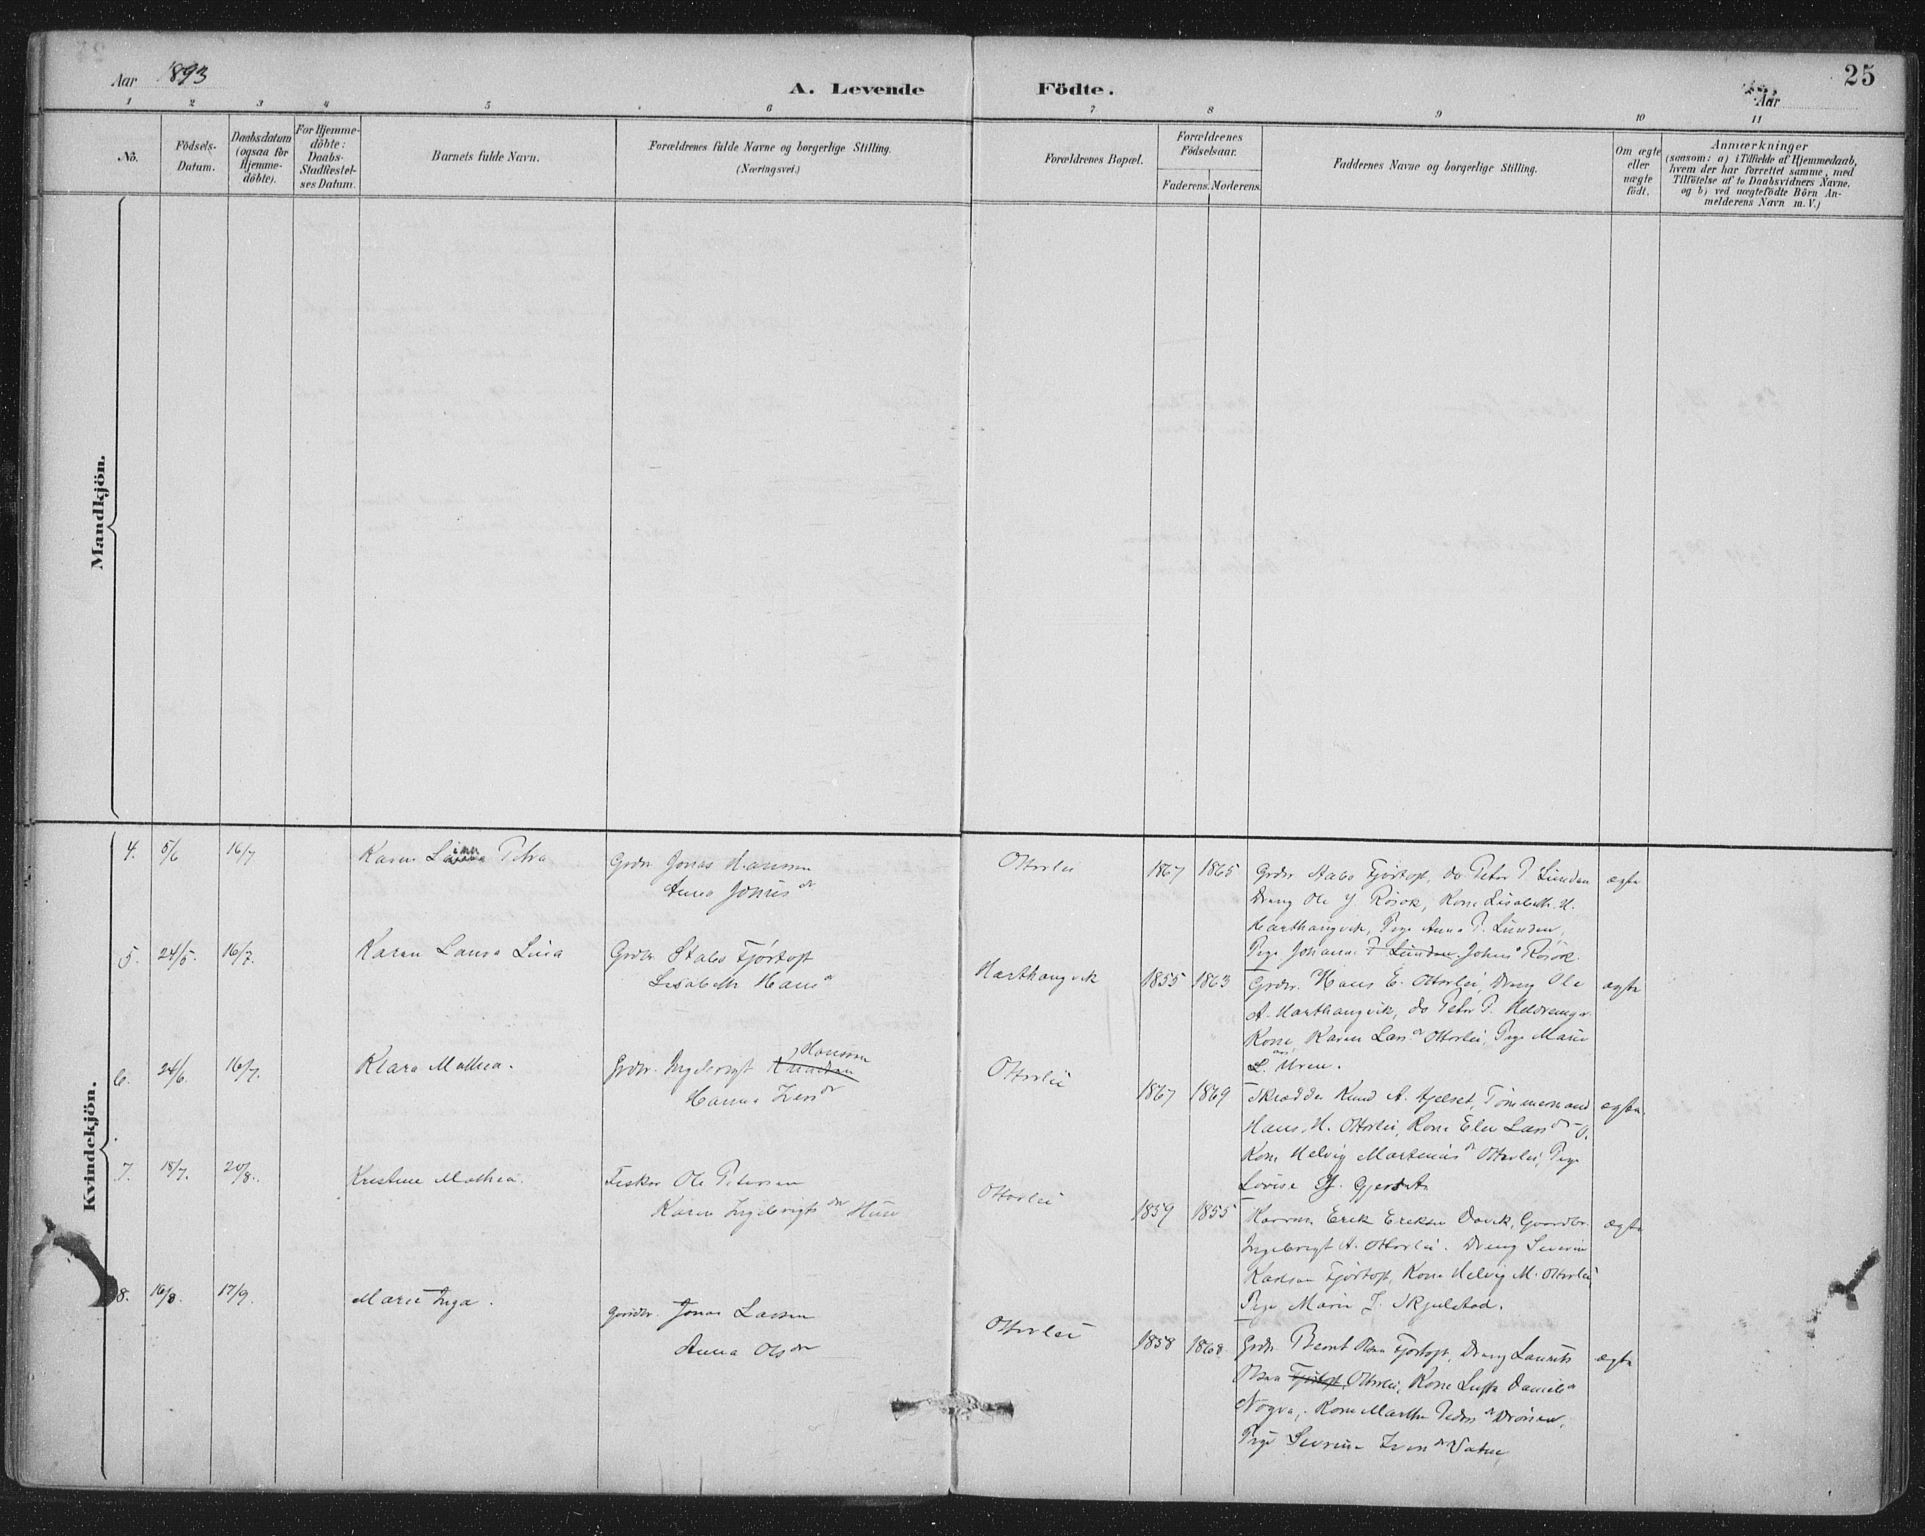 25
Aar 1893
A. Levende Födte.
Aar
1 2 3 4 5 6 7 8 9 10 11
No.
Födsels-Datum.
Daabsdatum (ogsaa for Hjemme-döbte).
For Hjemme-döbte: Daabs-Stadfæstel-ses Datum.
Barnets fulde Navn.
Forældrenes fulde Navne og borgerlige Stilling.
(Næringsvei.)
Forældrenes Bopæl.
Forældrenes Födselsaar.
Faderens. Moderens.
Faddernes Navne og borgerlige Stilling.
Om ægte eller uægte födt.
Anmærkninger
(saasom: a) i Tilfælde af Hjemmedaab,
hvem der har forrettet samme, med
Tilföielse af to Daabsvidners Navne,
og b) ved uægtefödte Börn An-
melderens Navn m. V.)
Mandkjön.
Kvindekjön.
4. 5/6 16/7 Karen Petra
Grdbr. Jonas Hansen
Anna Jonisdr
Otterlei 1867 1865
Grdbr. Stabo Fjørtoft, do Peter P. Lunden ægte
Dreng Ole J. Rösok, Kone Lisabeth H.
Harthangvik, Pige Anna P. Lunden,
Pige Johanna P. Lunden Johns Rösok.
5. 24/5. 16/7. Karen Laura Lusa
Grdbr. Stabo Fjørtoft
Lisabeth Hansdr
Harthangvik 1855 1863
Grdbr. Hans E. Otterlei, Dreng Ole ægte
A. Harthangvik, do Peter P.
Kone Karen Larsdr Otterlei, Pige Marie
L. Uren.
6. 24/6. 16/7. Klara Mathea.
Grdbr. Ingebrigt Knudsen Hansen
Hanna Iversdr
Otterlei 1867 1869
Skrædder Knud A. Hjelset, Tømmermand ægte.
Hans H. Otterlei, Kone Elen Larsdr O.
Kone Helvig Martinusdr Otterlei, Pige
Lovise
7. 18/7. 20/8. Kristine Mathea.
Fisker Ole Petersen
Karen Ingebrigtsdr
Otterlei 1859 1855
Erik Eriksen Davik, Gaardbr. ægte
Ingebrigt A. Otterlei. Dreng Severin
Karlsen Fjørtoft, Kone Helvig M. Otterlei
Pige Marie I. Skjelstad.
8. 16/8. 17/9. Marie Inga.
Gaardbr. Jonas Larsen
Anna Olsdr
Otterlei 1858 1868
Grdbr. Bernt Olsen Fjørtoft, Dreng Laurits ægte
Olsen Fjørtoft, Otterlei, Kone Danielsdr
Nogva, Kone Marthe Pedersdr Drönen,
Pige Severine Iversdr Vatne,